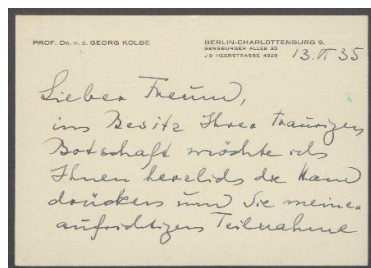 PROF. DR. H. C. GEORG KOLBE
BERLIN-CHARLOTTENBURG 9,
SENSBURGER ALLEE 25
J 9 HEERSTRASSE 4928
13. II 35
Lieber Freund,
im Besitz Ihrer traurigen
Botschaft möchte ich
Ihnen herzlich die Hand
drücken und Sie meiner
aufrichtigen Teilnahme